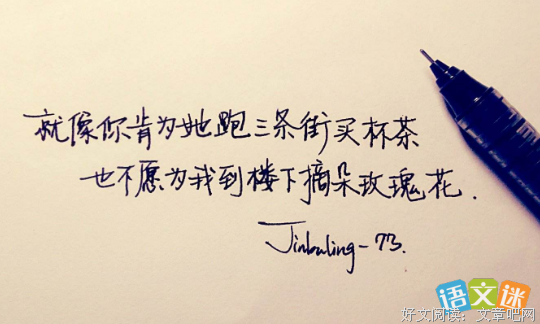 就像你肯为她跑三条街买杯茶
也不愿为我到楼下摘朵玫瑰花.
Jinbuling-73.
语文迷
好文阅读：文章吧网